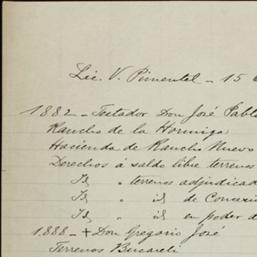 Lic. V. Pimentel - 15
1882 - Testador Don José Pabl
Rancho de la Hormiga
Hacienda de Rancho Nuevo
Derechos á saldo libre terrenos
Id " terrenos adjudicad
Id " id de Concesi
Id " id en poder d
1888 - + Don Gregorio José
Terrenos Bucareli